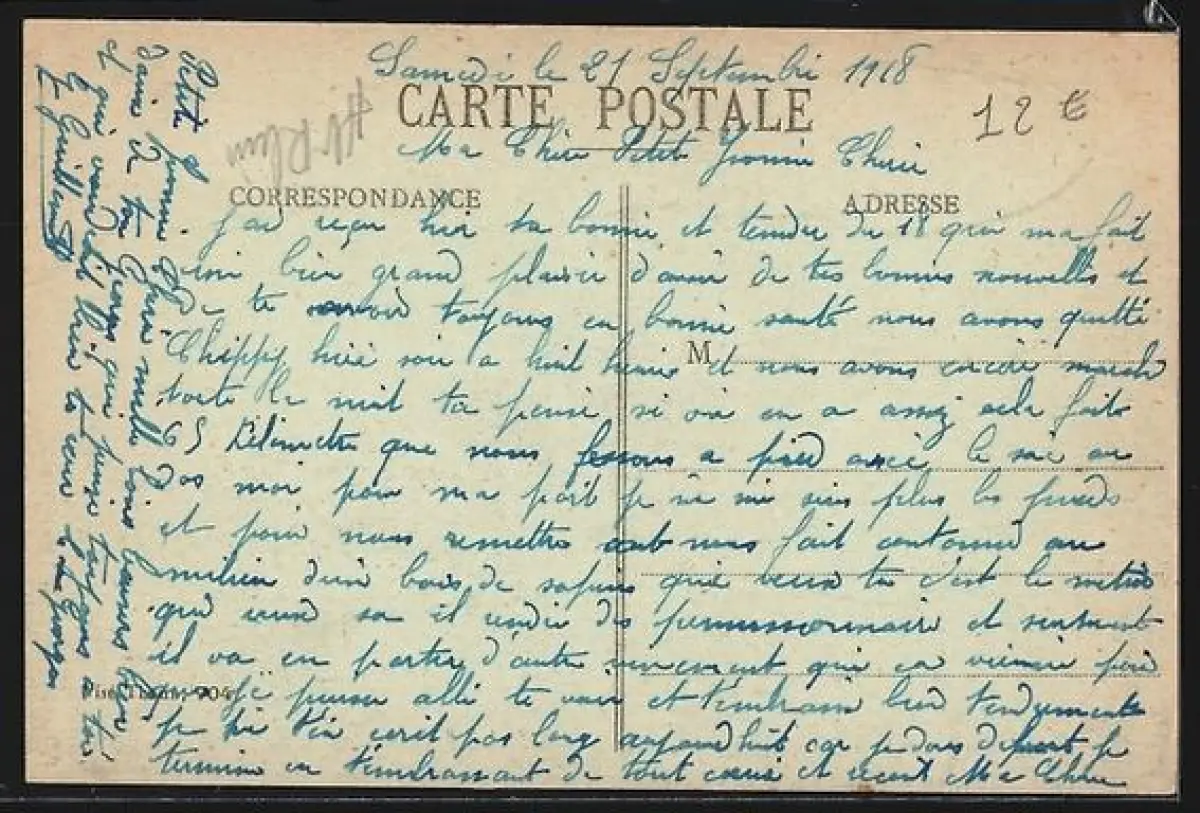 Samedi le 21 Septembre 1918
CARTE POSTALE
12 €
Ht Rhin
Ma Chere Petit Yvonne Cherie
CORRESPONDANCE
ADRESSE
J'ai reçu hier ta bonne et tendre du 18 qui ma fait
bien grand plaisir d'avoir de tes bonnes nouvelles et
de te savoir toujours en bonne santé nous avons quitté
Chippy hiié soir a huit heures et nous avons encore marché
M
toute la nuit tu pense si on en a assez cela fait
65 Kilometre que nous fessons a pied avec le sac au
dos moi pour ma part je ne me sens plus les pieds
et pour nous remettre on nous fait cantonné au
milieu d'un bois de sapins que veux tu c'est le metier
qui veux sa il rendre des permissionnaire et surement
il va en partir d'autre
que je puisse allé te voir et t'embrassé bien tendrement
Visé 704
je ne t'en ecrit pas long aujourd'huit car je dors debout je
termine en t'embrassant de tout coeur et recoit Ma Chere
Petite femme Chere mille bons baisers bien
doux de ton Georges qui pense toujours a toi
et qui voudrait bien te voir Ton Georges
G Guillem